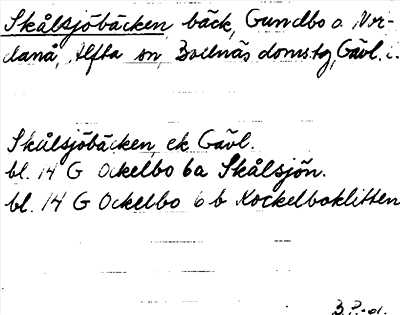 Skålsjöbäcken bäck, Gundbo o. Nor-
danå, Alfta sn, Bollnäs domstg, Gävl. l.
Skålsjöbäcken, ek Gävl.
bl. 14 G Ockelbo 6a Skålsjön.
bl. 14 G Ockelbo 6 b Kockelboklitten